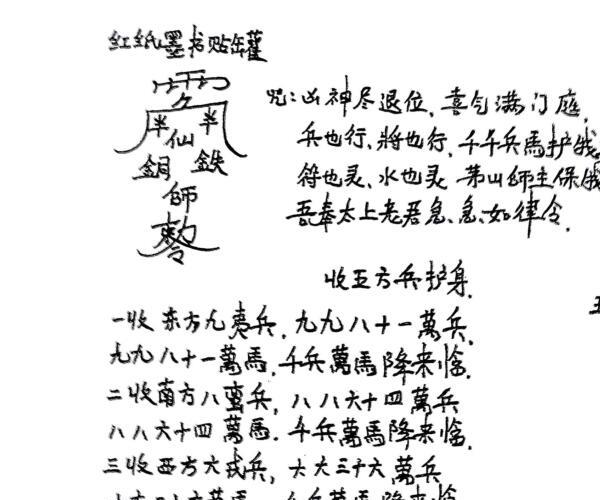 红纸墨书贴罐
雷
半 仙 半
銅 鉄
師
勅令
咒:凶神尽退位、喜气满门庭、
兵也行、將也行、千千兵馬护我
符也灵、水也灵 茅山師主保我
吾奉太上老君急、急、如律令.
收五方兵护身.
一收东方九夷兵、九九八十一萬兵、
九九八十一萬馬、千兵萬馬降来临.
二收南方八蛮兵、八八六十四萬兵
八八六十四萬馬、千兵萬馬降来临.
三收西方六戎兵、六六三十六萬兵